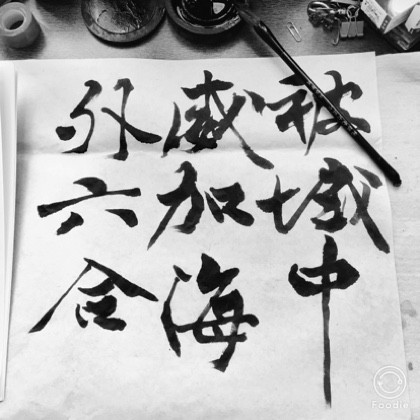 被域中
威加海
外六合
Foodie